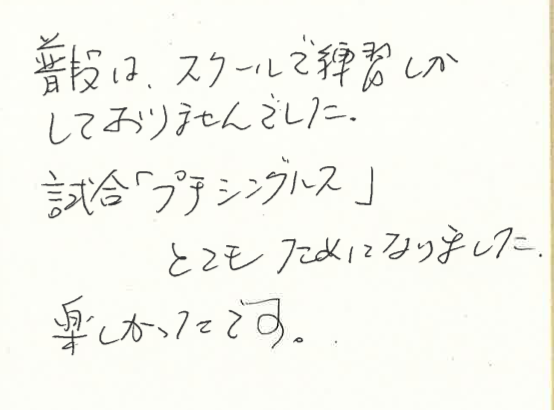 普段は、スクールで練習しか
しておりませんでした.
試合「プチシングルス」
とてもためになりました.
楽しかったです。